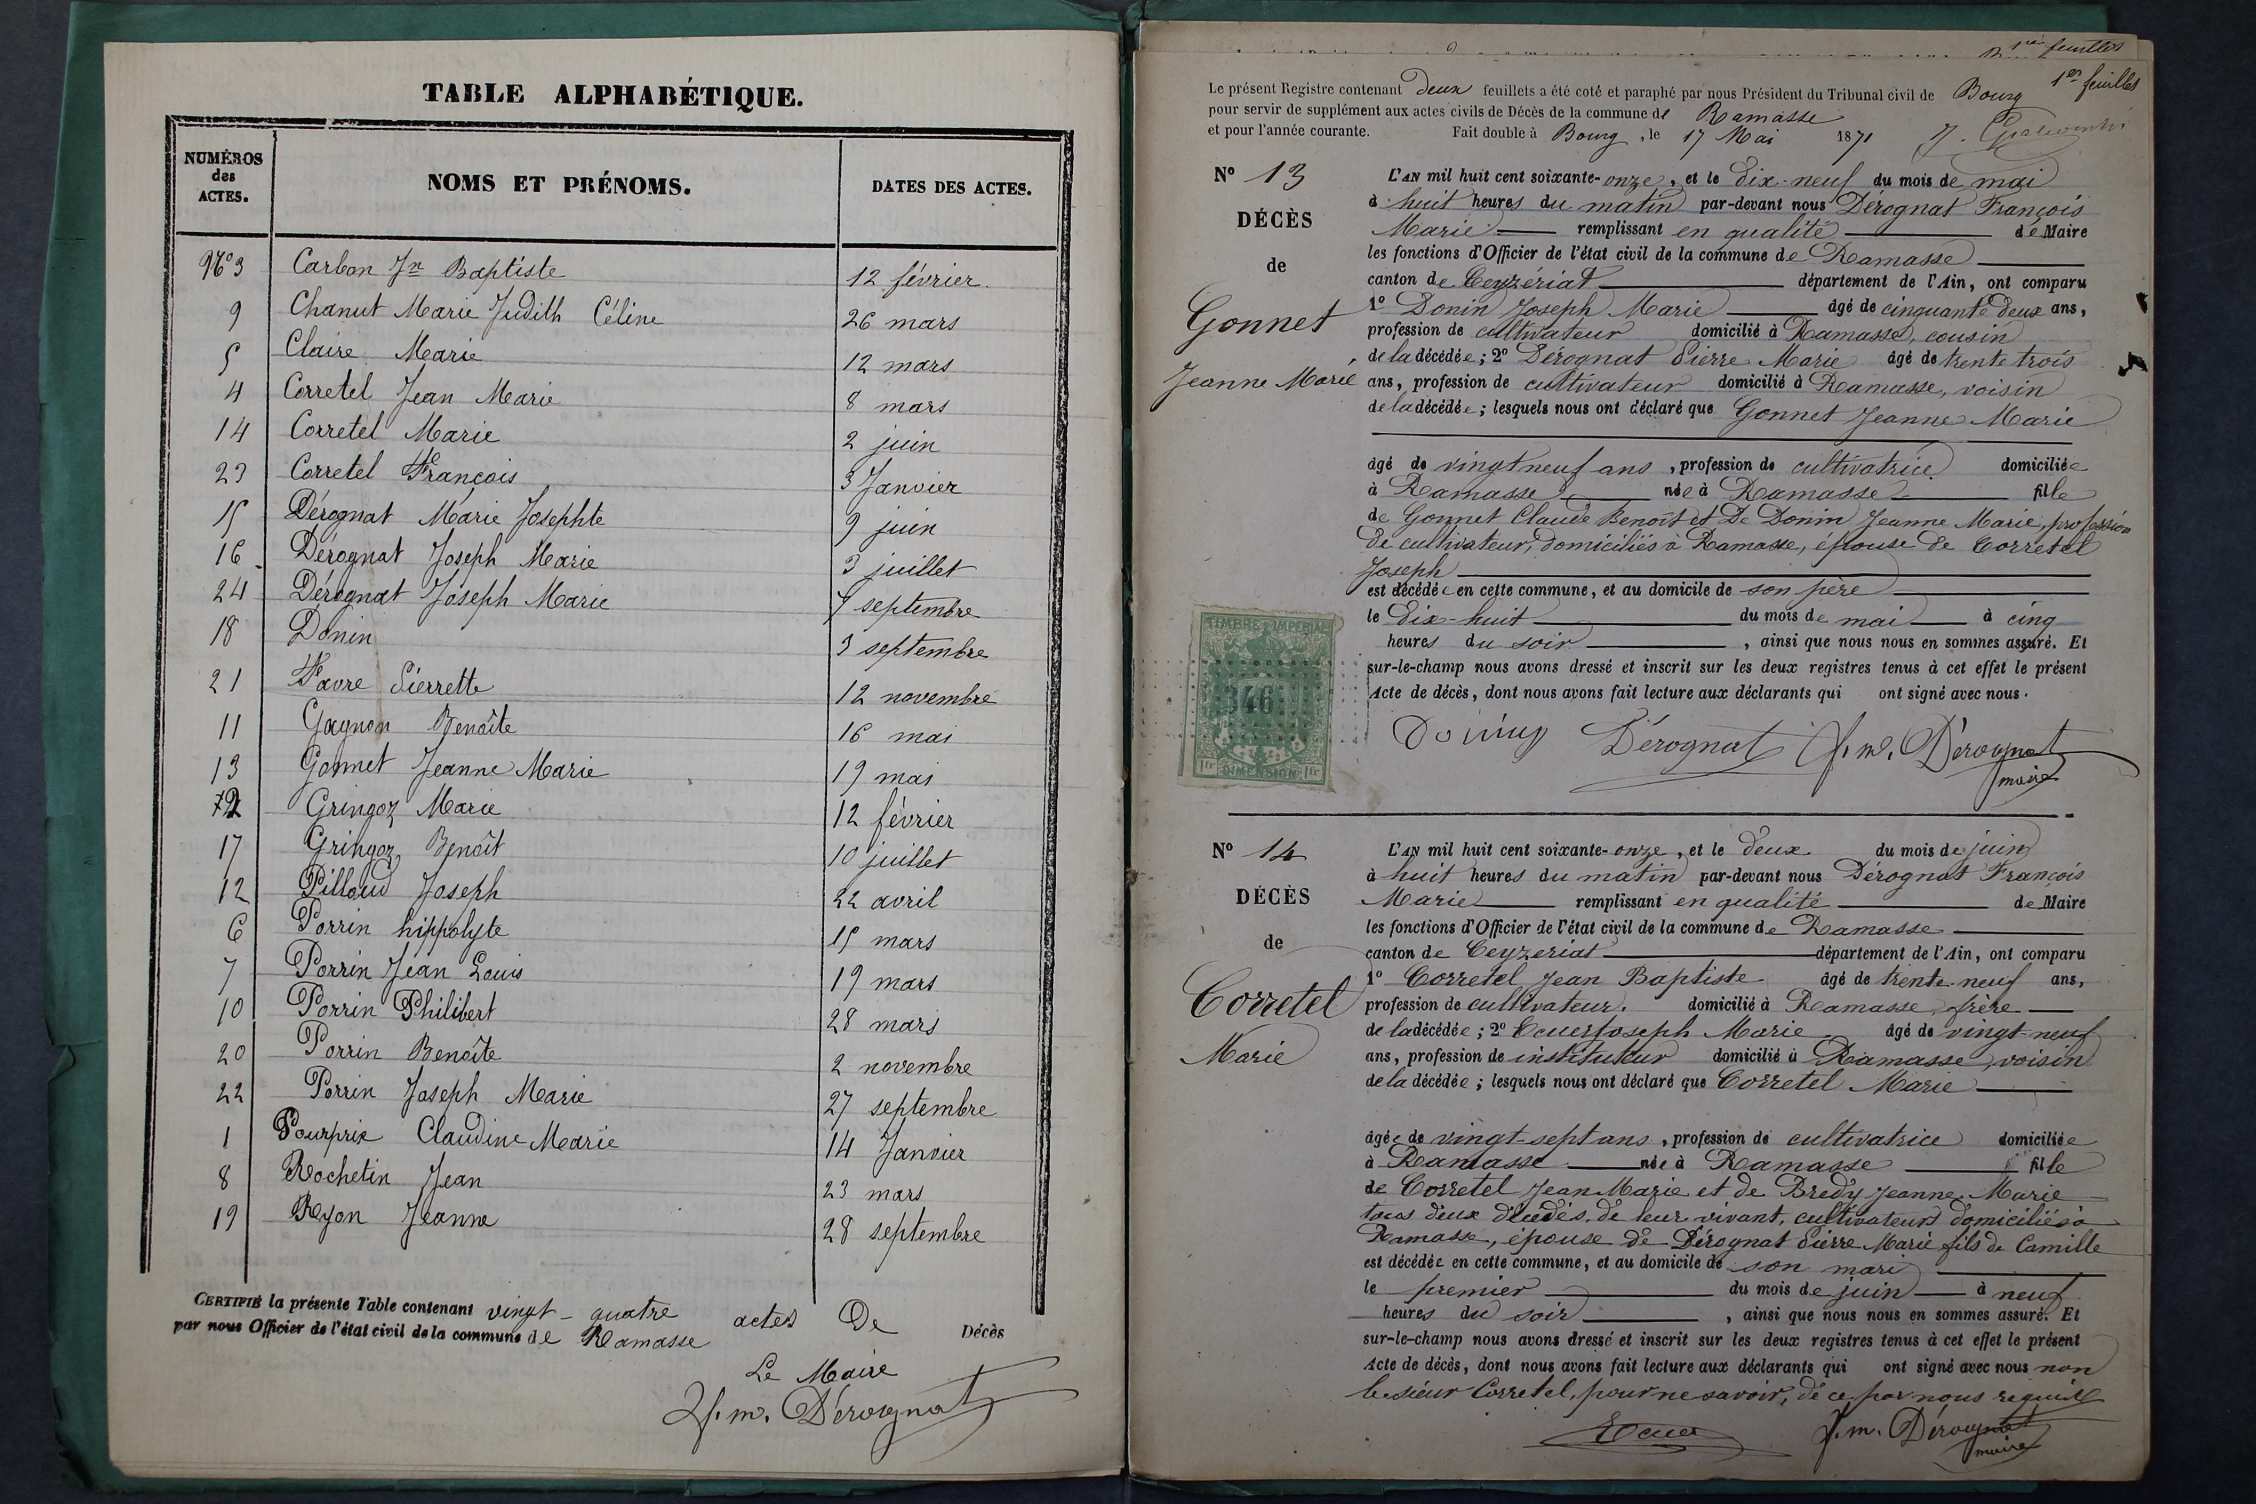 TABLE ALPHABÉTIQUE.
NUMÉROS des ACTES.
NOMS ET PRÉNOMS.
DATES DES ACTES.
No 3 Carbon Jn Baptiste 12 février.
9 Chanut Marie Judith Céline 26 mars
5 Claire Marie 12 mars
4 Corretel Jean Marie 8 mars
14 Corretel Marie 2 juin
23 Corretel François 3 Janvier
15 Dérognat Marie Josephte 9 juin
16 Dérognat Joseph Marie 3 juillet
24 Dérognat Joseph Marie 7 septembre
18 Donin 3 septembre
21 Favre Pierrette 12 novembre
11 Gagnon Benoîte 16 mai
13 Gonnet Jeanne Marie 19 mai
2 Gringoz Marie 12 février
17 Gringoz Benoît 10 juillet
12 Pilloud Joseph 22 avril
6 Porrin hippolyte 15 mars
7 Porrin Jean Louis 19 mars
10 Porrin Philibert 28 mars
20 Porrin Benoîte 2 novembre
22 Porrin Joseph Marie 27 septembre
1 Pourprix Claudine Marie 14 Janvier
8 Rochetin Jean 23 mars
19 Ryon Jeanne 28 septembre
CERTIFIÉ la présente Table contenant vingt-quatre actes De Décès
par nous Officier de l'état civil de la commune de Ramasse
Le Maire
f. m. Dérognat
1er feuillet
1er feuillet
Le présent Registre contenant deux feuillets a été coté et paraphé par nous Président du Tribunal civil de Bourg
pour servir de supplément aux actes civils de Décès de la commune de Ramasse
et pour l'année courante. Fait double à Bourg, le 17 Mai 1871
No 13
DÉCÈS
de
Gonnet
Jeanne Marie
L'AN mil huit cent soixante-onze, et le dix-neuf du mois de mai
à huit heures du matin par-devant nous Dérognat François
Marie remplissant en qualité de Maire
les fonctions d'Officier de l'état civil de la commune de Ramasse
canton de Ceyzériat département de l'Ain, ont comparu
1o Donin Joseph Marie âgé de cinquante deux ans,
profession de cultivateur domicilié à Ramasse, cousin
de la décédée; 2o Dérognat Pierre Marie âgé de trente trois
ans, profession de cultivateur domicilié à Ramasse, voisin
de la décédée; lesquels nous ont déclaré que Gonnet Jeanne Marie
âgé de vingt neuf ans, profession de cultivatrice domiciliée
à Ramasse née à Ramasse fille
de Gonnet Claude Benoît et De Donin Jeanne Marie, profession
de cultivateur, domiciliés à Ramasse, épouse de Corretel
Joseph
est décédée en cette commune, et au domicile de son père
le dix-huit du mois de mai à cinq
heures du soir, ainsi que nous nous en sommes assuré. Et
sur-le-champ nous avons dressé et inscrit sur les deux registres tenus à cet effet le présent
Acte de décès, dont nous avons fait lecture aux déclarants qui ont signé avec nous.
TIMBRE IMPÉRIAL
346
1 fr DIMENSION 1 fr
Dérognat f. m. Dérognat
maire
No 14
DÉCÈS
de
Corretel
Marie
L'AN mil huit cent soixante-onze, et le deux du mois de juin
à huit heures du matin par-devant nous Dérognat François
Marie remplissant en qualité de Maire
les fonctions d'Officier de l'état civil de la commune de Ramasse
canton de Ceyzeriat département de l'Ain, ont comparu
1o Corretel Jean Baptiste âgé de trente-neuf ans,
profession de cultivateur. domicilié à Ramasse, frère
de la décédée; 2o Joseph Marie âgé de vingt-neuf
ans, profession de instituteur domicilié à Ramasse, voisin
de la décédée; lesquels nous ont déclaré que Corretel Marie
âgée de vingt-sept ans, profession de cultivatrice domiciliée
à Ramasse née à Ramasse fille
de Corretel Jean Marie et de Bredy Jeanne Marie
tous deux décédés, de leur vivant, cultivateurs domiciliés à
Ramasse, épouse de Dérognat Pierre Marie fils de Camille
est décédée en cette commune, et au domicile de son mari
le premier du mois de juin à neuf
heures du soir, ainsi que nous nous en sommes assuré. Et
sur-le-champ nous avons dressé et inscrit sur les deux registres tenus à cet effet le présent
Acte de décès, dont nous avons fait lecture aux déclarants qui ont signé avec nous non
le sieur Corretel, pour ne savoir, de ce par nous requis
f. m. Dérognat
maire